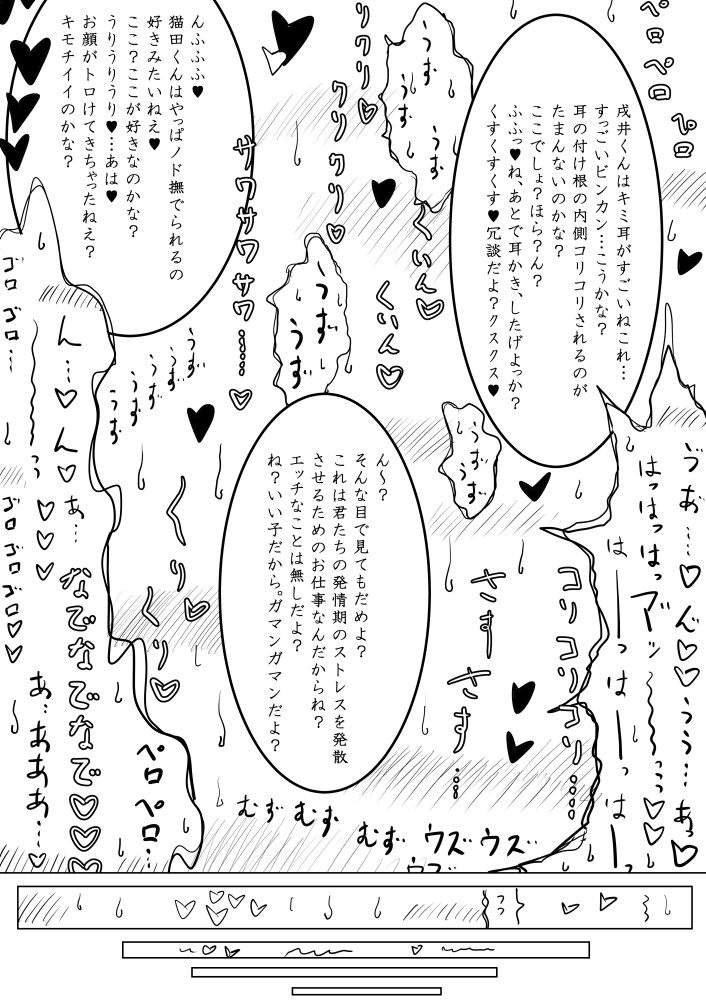 ペロペロ
ペロ
戌井くんはキミ耳がすごいねこれ…
すっごいビンカン…こうかな?
耳の付け根の内側コリコリされるのが
たまんないのかな?
ここでしょ?ほら?ん?
ふふっ♥ね、あとで耳かき、したげよっか?
くすくすくす♥冗談だよ?クスクス♥
うず
うず
うず
くいん♡
くいん♡
クリクリ♡
クリクリ♡
サワサワサワ…
んふふふ♥
猫田くんはやっぱノド撫でられるの
好きみたいねえ♥
ここ?ここが好きなのかな?
うりうりうり♥…あは♥
お顔がトロけてきちゃったねえ?
キモチイイのかな?
うず
うず
うず
うず
うず
うず
うず
うず
ゴロゴロ…
ん…♡ん♡
あ…
ん〜?
そんな目で見てもだめよ?
これは君たちの発情期のストレスを発散
させるためのお仕事なんだからね?
エッチなことは無しだよ?
ね?いい子だから。ガマンガマンだよ?
はっはっはっ
はーっはーっはーっ
コリコリコリ…
さす
さす…
くり
くり♡
ゴロゴロゴロ♡♡
なでなでなで♡♡♡
あ…あああ…♡
ペロペロ…
むずむず
むず
ウズウズ
ウズ